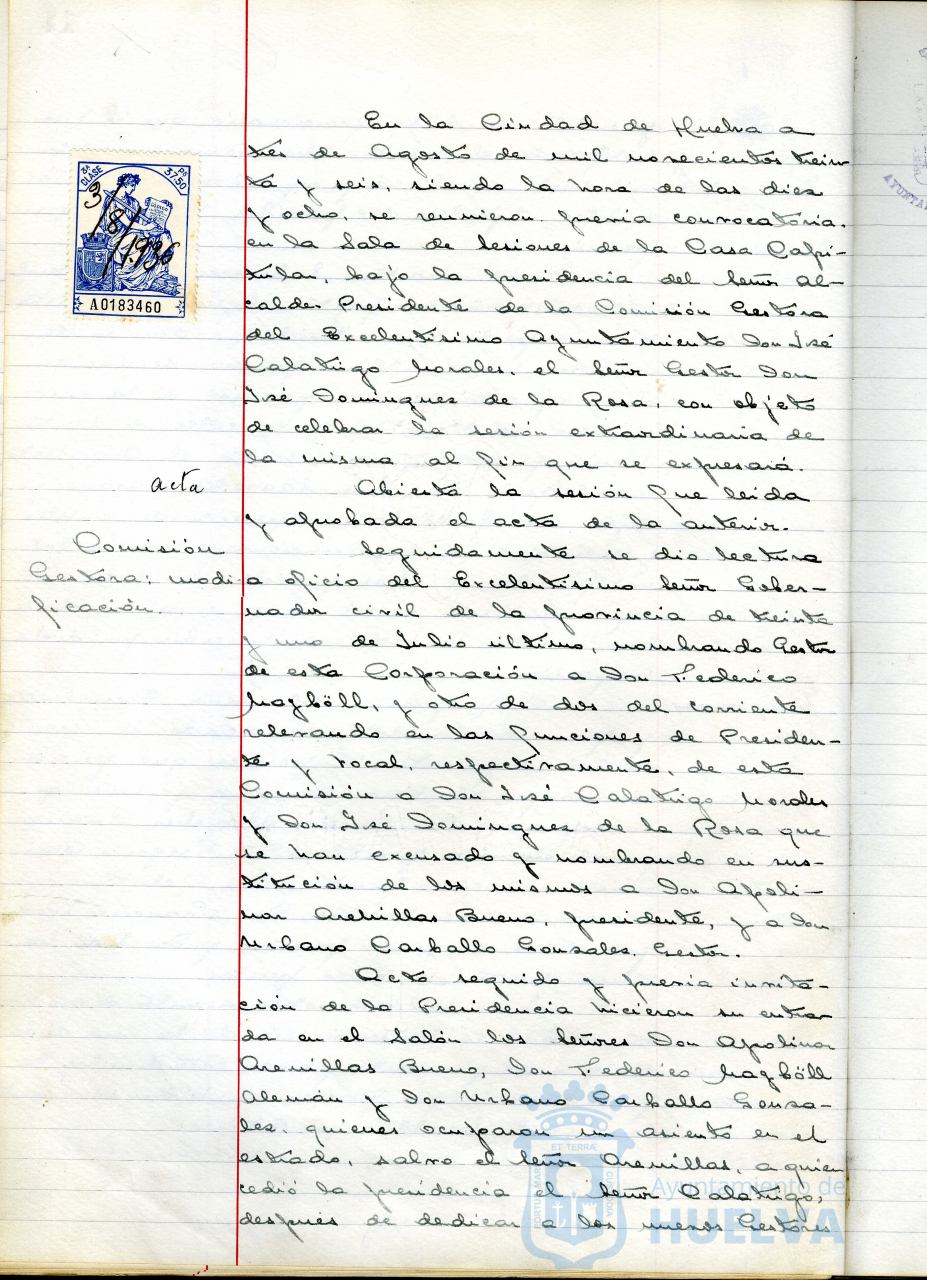 En la Ciudad de Huelva a
tres de Agosto de mil novecientos trein-
ta y seis, siendo la hora de las diez
y ocho, se reunieron, previa convocatoria,
en la Sala de Sesiones de la Casa Capi-
tular, bajo la presidencia del Señor Al-
calde Presidente de la Comisión Gestora
del Excelentísimo Ayuntamiento Don José
Calatrigo Morales, el Señor Gestor Don
José Dominguez de la Rosa, con objeto
de celebrar la sesión extraordinaria de
la misma al fin que se expresará.
acta
Abierta la sesión fue leida
y aprobada el acta de la anterior.
Comisión
Gestora; modi-
ficación.
Seguidamente se dio lectura
a oficio del Excelentísimo Señor Gober-
nador civil de la provincia de treinta
y uno de Julio último, nombrando Gestor
de esta Corporación a Don Federico
Magböll, y otro de dos del corriente
relevando en las funciones de Presiden-
te y vocal, respectivamente, de esta
Comisión a Don José Calatrigo Morales
y Don José Dominguez de la Rosa que
se han excusado y nombrando en sus-
titución de los mismos a Don Apoli-
nar Arenillas Bueno, presidente, y a Don
Urbano Carballo Gonzales, Gestor.
Acto seguido y previa invita-
ción de la Presidencia hicieron su entra-
da en el Salón los Señores Don Apolinar
Arenillas Bueno, Don Federico Magböll
Alemán y Don Urbano Carballo Gonza-
les, quienes ocuparon un asiento en el
estrado, salvo el Señor Arenillas, a quien
cedió la presidencia el Señor Calatrigo,
después de dedicar a los nuevos Gestores
8ª CLASE
37'50 Ps
3/8/1936
A0183460
PORTUS MARIS ET TERRÆ CUSTODIA
Ayuntamiento de
HUELVA